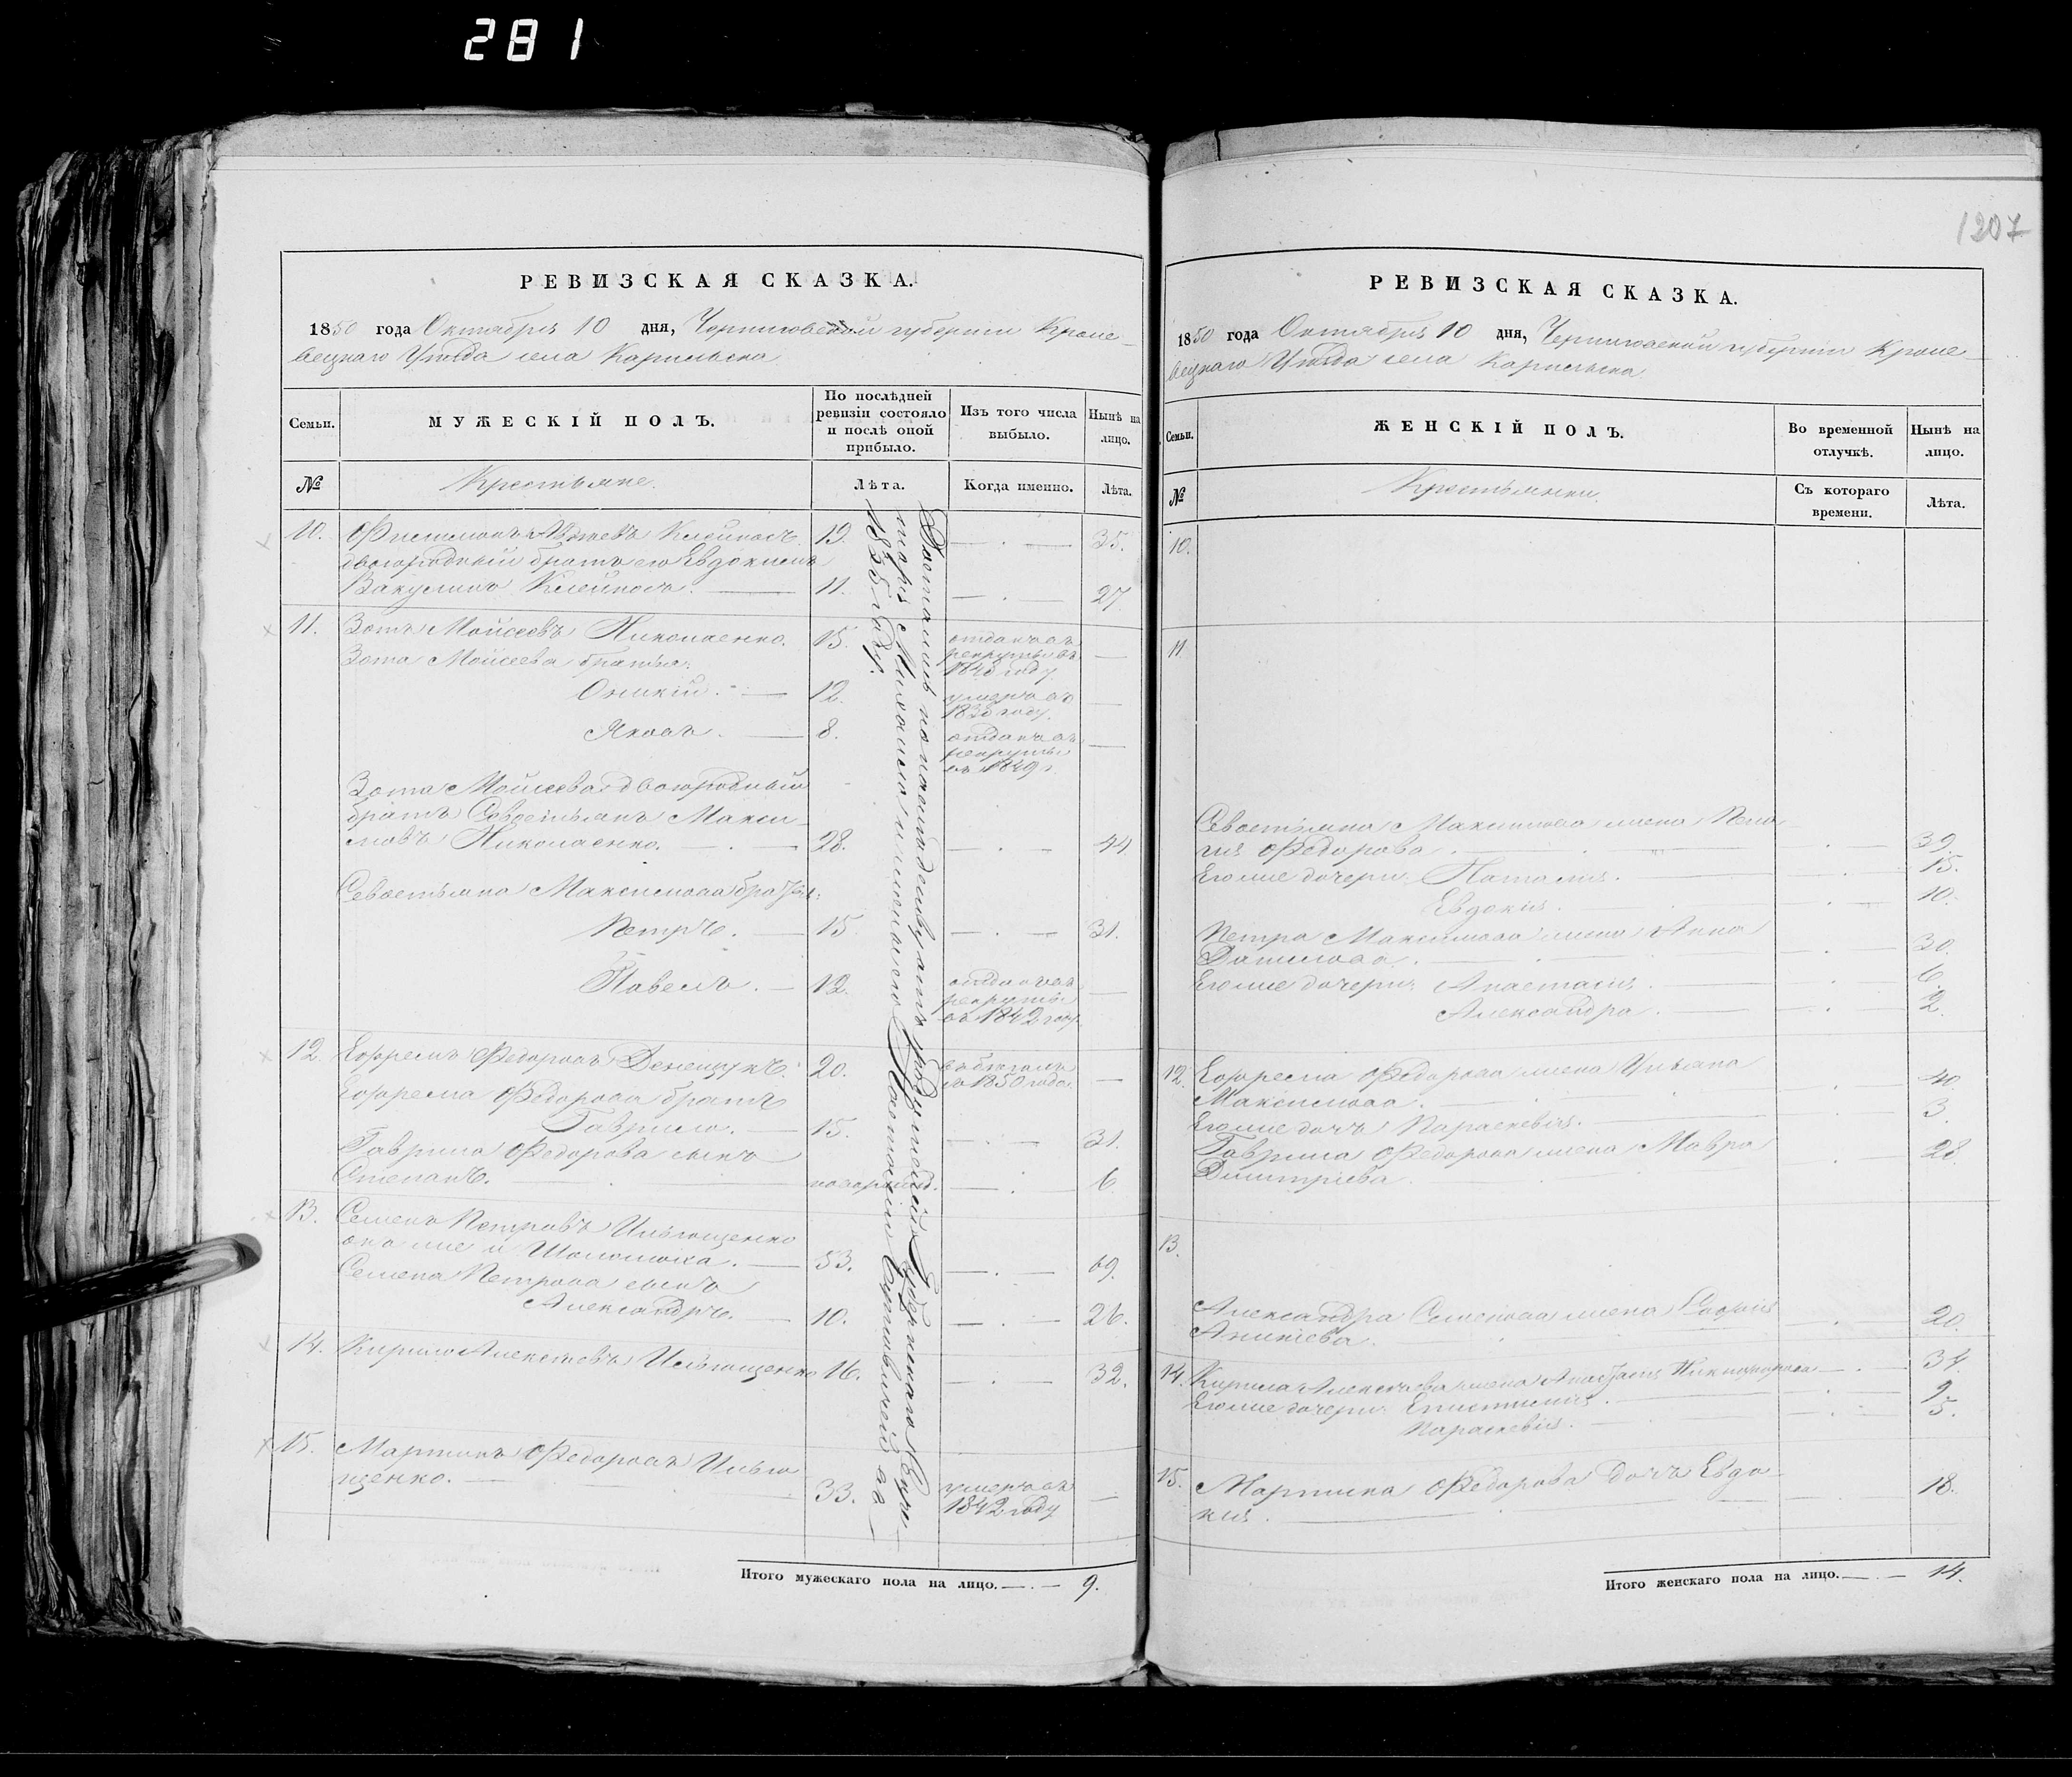 281
1207
РЕВИЗСКАЯ СКАЗКА.
1850 года Октября 10 дня, Черниговской губернии Кроле-
вецкаго Уѣзда села Карильска
Семьи.
МУЖЕСКІЙ ПОЛЪ.
По послѣдней
ревизіи состояло
и послѣ оной
прибыло.
Изъ того числа
выбыло.
Нынѣ на
лицо.
№
Крестьяне.
Лѣта.
Когда именно.
Лѣта.
10. 19. 35.
двоюродный братъ его Евдокимъ
11. 27
11. Зотъ Моисеевъ Николаенко. 15. отданъ въ
рекруты въ
Зота Моисеева братья:
12. умеръ въ
Яковъ. 8. отданъ въ
рекруты
въ 1849 г.
Зота Моисеева двоюродный
братъ Севастьянъ Макси-
мовъ Николаенко. 28. 44
Севастьяна Максимова братья:
Петръ. 15. 31.
Павелъ. 12. отданъ въ
рекруты
въ 1842 году
12. Ефремъ Федоровъ 20. въ бѣгахъ
съ 1850 года.
Ефрема Федорова братъ
Гаврило. 15. 31.
Гаврила Федорова сынъ
Степанъ. новорожд. 6
13. Семенъ Петровъ Ильющенко
онъ же и 53. 69.
Семена Петрова сынъ
Александръ. 10. 26.
14. Кирило Алексѣевъ Ильющенко 16. 32.
15. Мартинъ Федоровъ Илью
щенко. 33. умеръ въ
1842 году
Достались по наслѣдству отъ родителей Губернскаго Секре-
таря Михаила
1835 году.
Итого мужескаго пола на лицо. 9.
РЕВИЗСКАЯ СКАЗКА.
1850 года Октября 10 дня, Черниговской губерніи Кроле-
вецкаго Уѣзда села Карильска
Семьи.
ЖЕНСКІЙ ПОЛЪ.
Во временной
отлучкѣ.
Нынѣ на
лицо.
№
Крестьянки.
Съ котораго
времени.
Лѣта.
10.
11
Севастьяна Максимова жена Пела
гія Федорова 39.
Его же дочери: Наталія. 15.
Евдокія. 10.
Петра Максимова жена Анна
Данилова. 30.
Его же дочери: Анастасія. 6.
Александра. 2.
12. Ефрема Федорова жена Ульяна
Максимова. 40.
Его же дочь Параскевія. 3.
Гаврила Федорова жена Мавра
Дмитріева 28.
13.
Александра Семенова жена Софія
20.
14. Кирила Алексѣева жена 34.
Его же дочери: Епистимія. 9
Параскевія. 5.
15. Мартина Федорова дочь Евдо-
кія. 18.
Итого женскаго пола на лицо. 14.